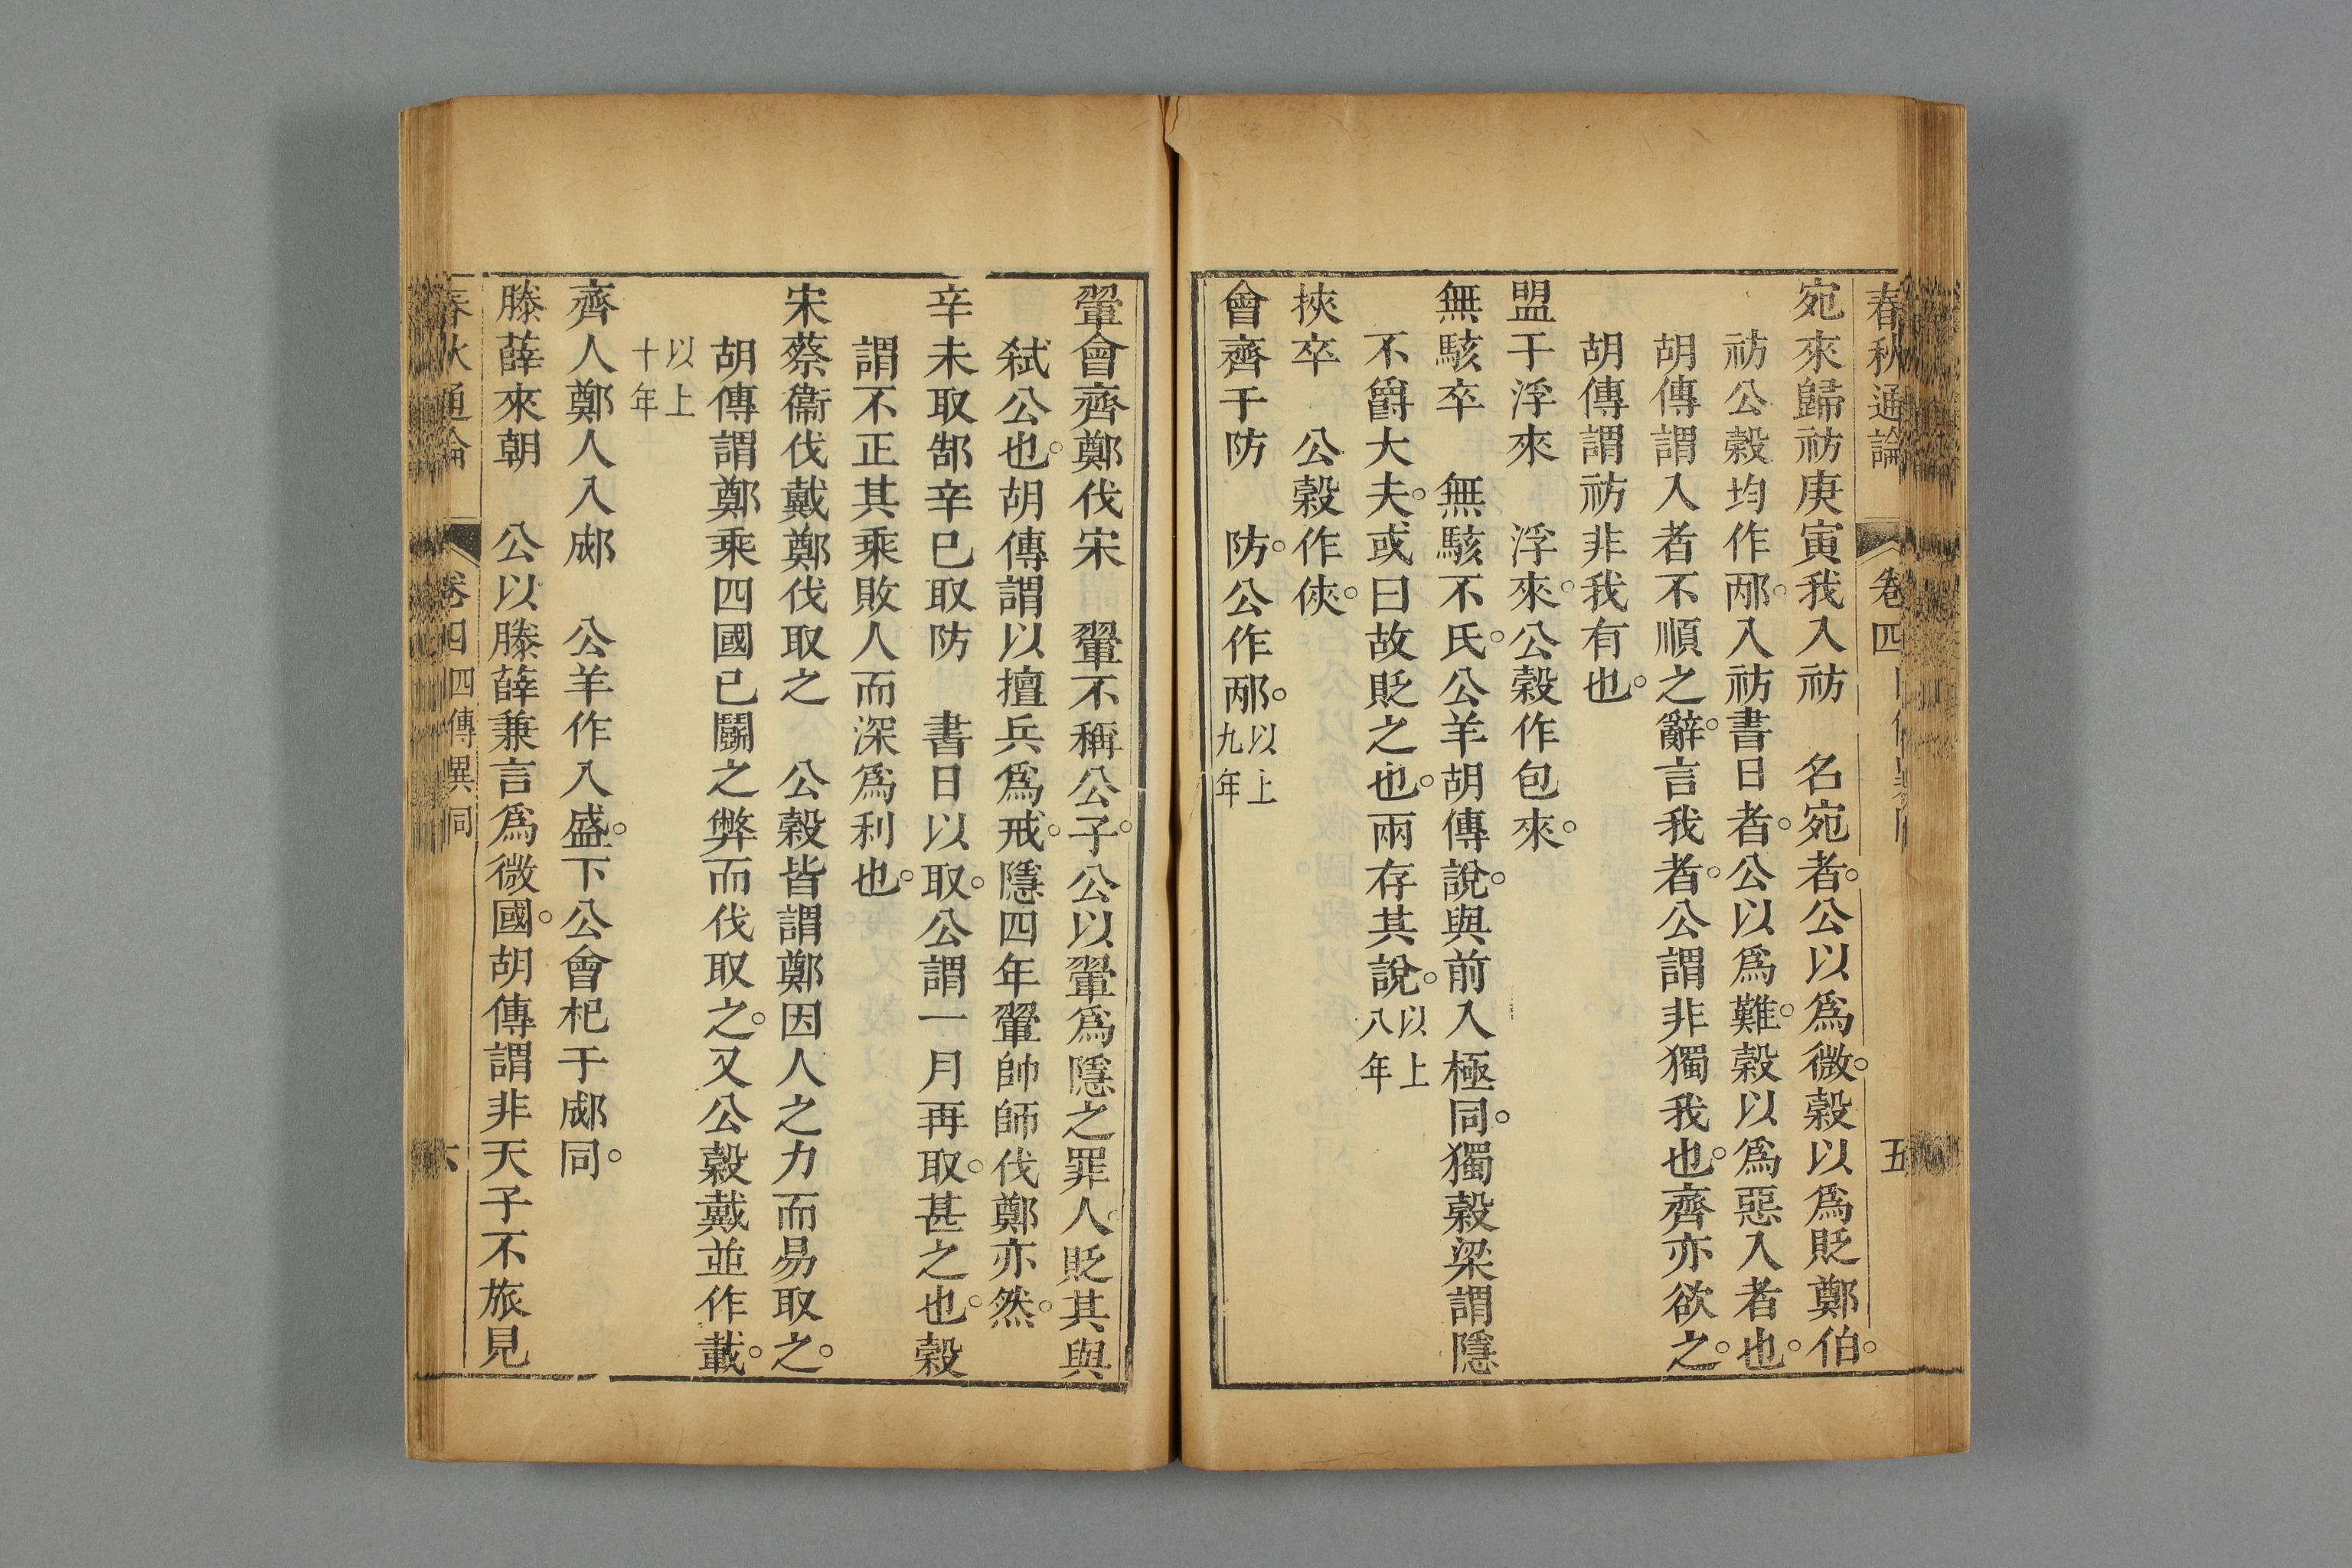 春秋通論 卷四 五
宛來歸祊庚寅我入祊 名宛者。公以爲微。穀以爲貶鄭伯。
祊公穀均作邴。入祊書日者。公以爲難。穀以爲惡入者也。
胡傳謂入者不順之辭。言我者。公謂非獨我也。齊亦欲之。
胡傳謂祊非我有也。
盟于浮來 浮來。公穀作包來。
無駭卒 無駭不氏。公羊胡傳說。與前入極同。獨穀梁謂隱
不爵大夫。或曰故貶之也。兩存其說。以上八年
挾卒 公穀作俠。
會齊于防 防。公作邴。以上九年
翬會齊鄭伐宋 翬不稱公子。公以翬爲隱之罪人。貶其與
弑公也。胡傳謂以擅兵爲戒。隱四年翬帥師伐鄭亦然。
辛未取郜辛巳取防 書日以取。公謂一月再取。甚之也。穀
謂不正其乘敗人而深爲利也。
宋蔡衞伐戴鄭伐取之 公穀皆謂鄭因人之力而易取之。
胡傳謂鄭乘四國已鬬之弊而伐取之。又公穀戴並作載。
以上十年
齊人鄭人入郕 公羊作入盛。下公會杞于郕同。
滕薛來朝 公以滕薛兼言爲微國。胡傳謂非天子不旅見
春秋通論 卷四 四傳異同 六